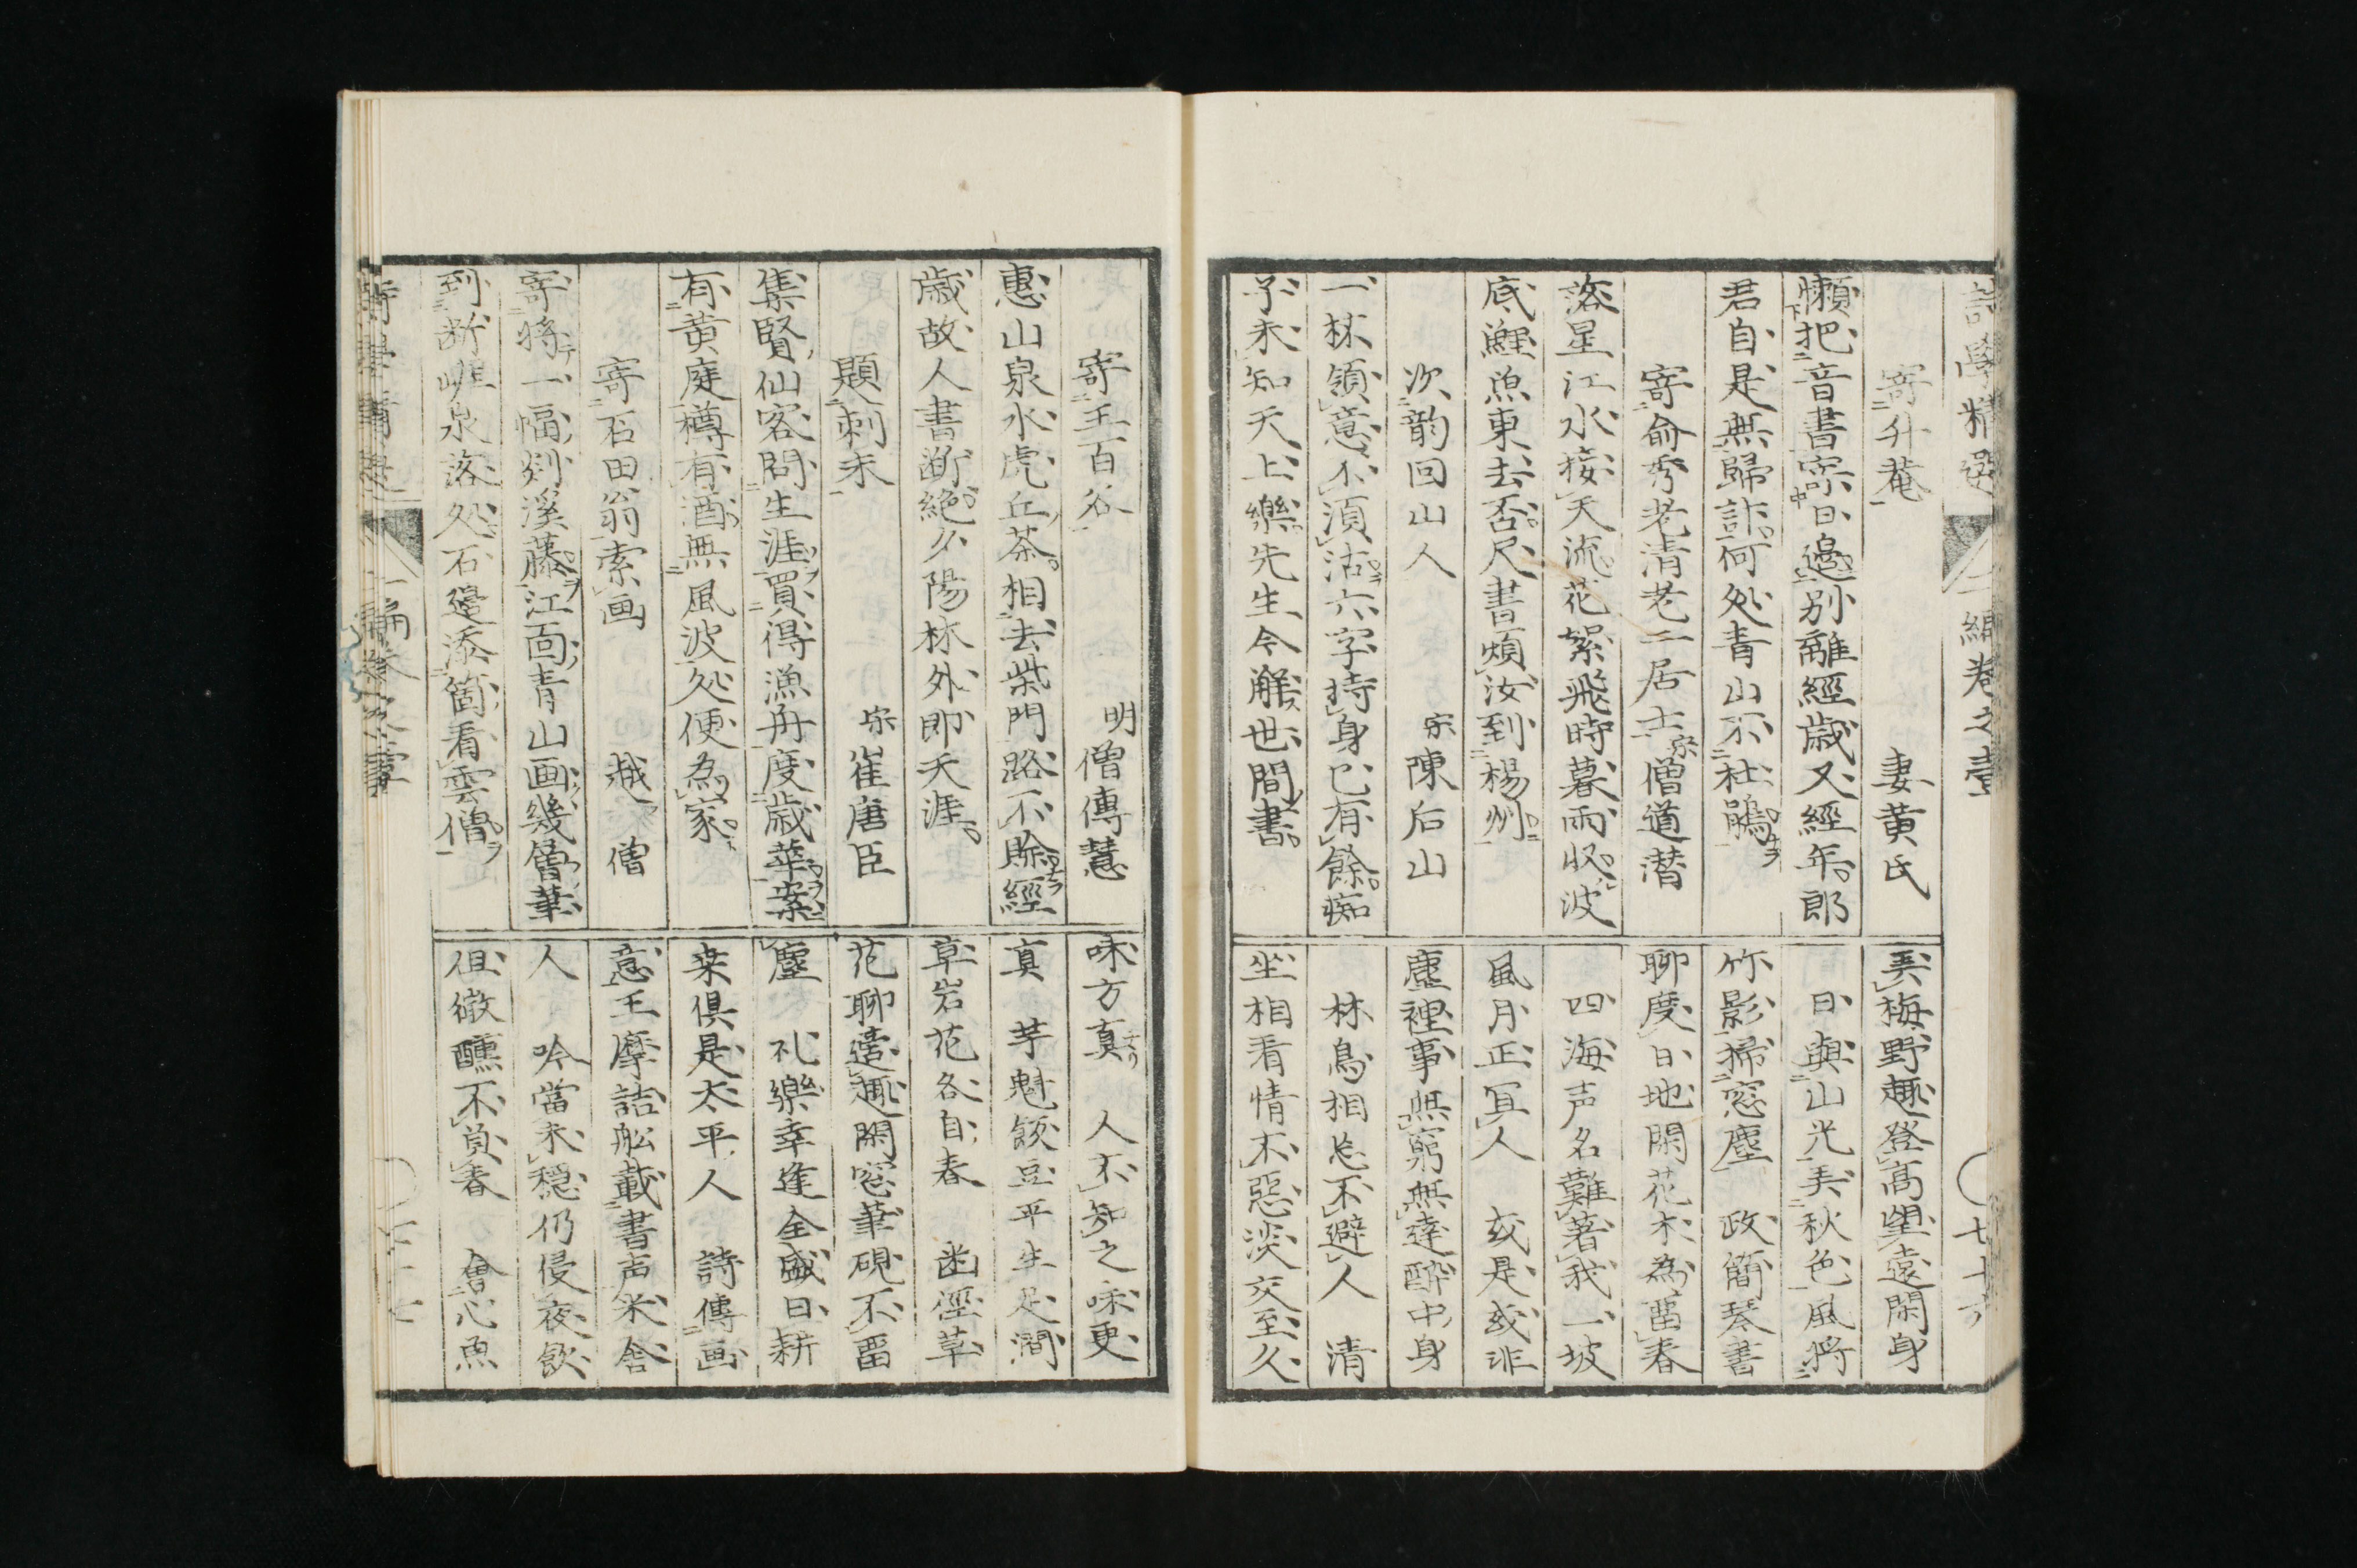 詩學精選 二編卷之壹
寄升菴 妻黄氏
懶把音書寄日邊別離經歳又經年郎
君自是無歸計何処青山不杜鵑
寄俞秀老清老二居士 宋僧道潜
落星江水接天流花絮飛時暮雨収波
底鯉魚東去否尺書煩汝到楊州
次韵回山人 宋陳后山
一杯領意不須沽六字持身已有餘痴
子未知天上樂先生今解世間書
弄梅野趣登高望遠閑身
日與山光弄秋色風将
竹影掃窓塵 政簡琴書
聊度日地閑花木為畱春
四海声名難著我一坡
風月正冝人 或是或非
塵裡事無窮無達醉中身
林鳥相忘不避人 清
坐相看情不惡淡交至久
寄王百谷 明僧傳慧
惠山泉水虎丘茶相去柴門路不賒經
歳故人書断絶夕陽林外即天涯
題刺未 宋崔唐臣
集賢仙客問生涯買得漁舟度歳華案
有黄庭樽有酒無風波処便為家
寄石田翁索画 越僧
寄将一幅剡溪藤江面青山画幾層筆
到断崕泉落処石邉添箇看雲僧
味方真 人不知之味更
真 芋魁飯豆平生足澗
草岩花各自春 幽徑草
花聊適趣閑窓筆硯不畱
塵 礼樂幸逢全盛日耕
桒俱是太平人 詩傳画
意王摩詰舩載書声米舎
人 吟當未穏仍侵夜飲
但微醺不負春 會心魚